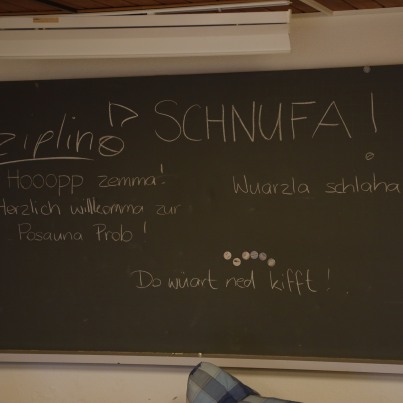 ziplino
SCHNUFA!
Hooopp zemma!
Herzlich willkomma zur
Posauna Prob!
Wuarzla schlaha
Do wüart ned kifft!